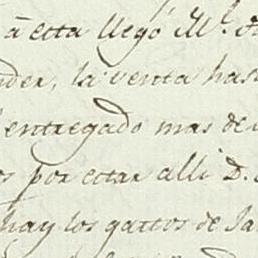 â esta llegó M.l
nder, la venta has
entregado mas de
por estar alli D.
hay los gastos de Ja